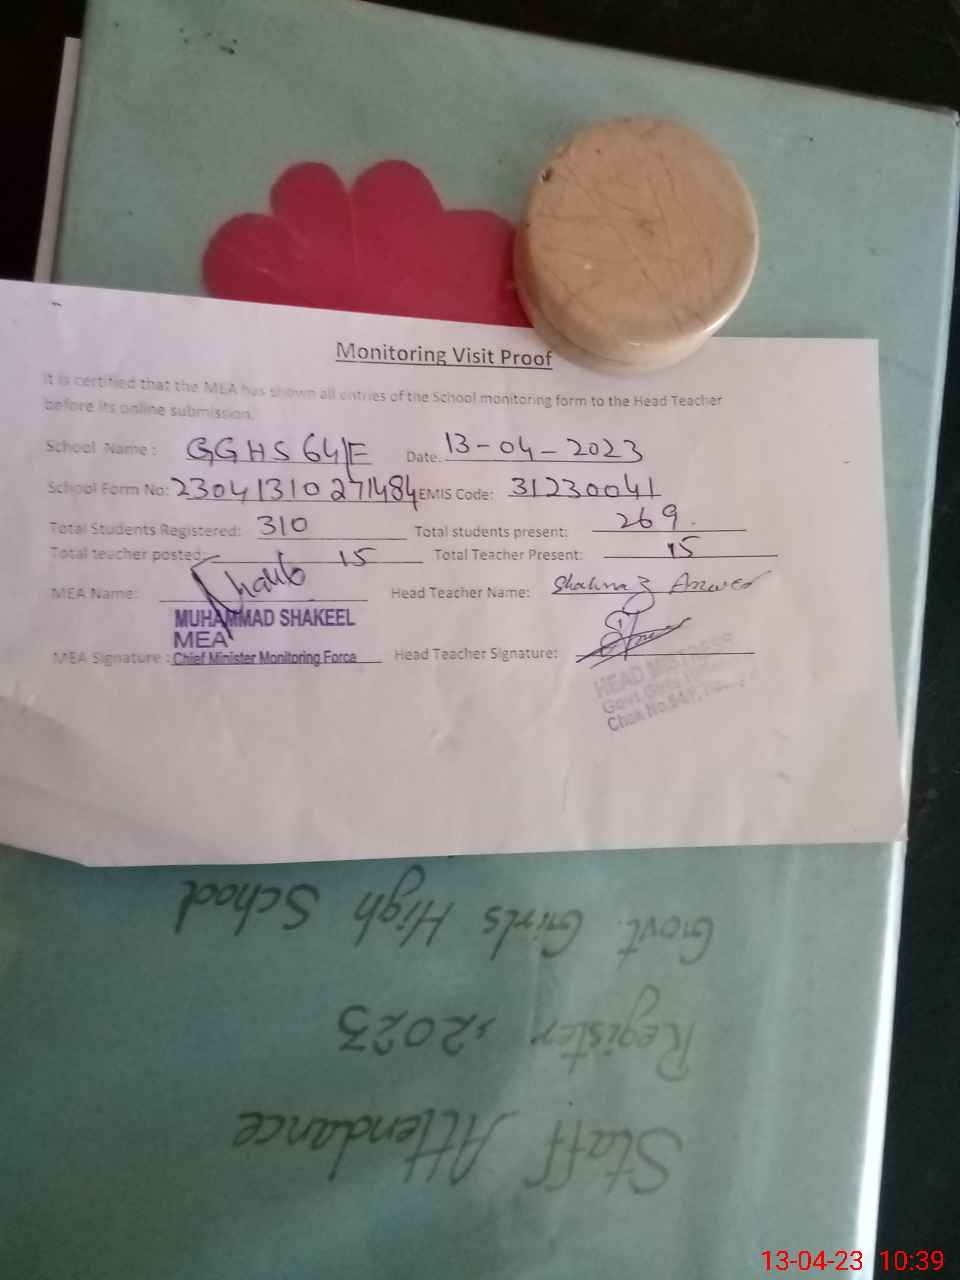 Monitoring Visit Proof
It is certified that the MEA has shown all entries of the School monitoring form to the Head Teacher
before its online submission.
School Name: GGHS 64/F Date. 13-04-2023
School Form No: 23041310271484 EMIS Code: 31230041
Total Students Registered: 310 Total students present: 269.
Total teacher posted: 15 Total Teacher Present: 15
MEA Name: Head Teacher Name: Shahnaz Anwer
MUHAMMAD SHAKEEL
MEA
MEA Signature: Chief Minister Monitoring Force Head Teacher Signature:
HEAD MISTRESS
Govt. Girls
Chak No. 64/F,
Staff Attendance
Register, 2023
Govt. Girls High School
13-04-23 10:39